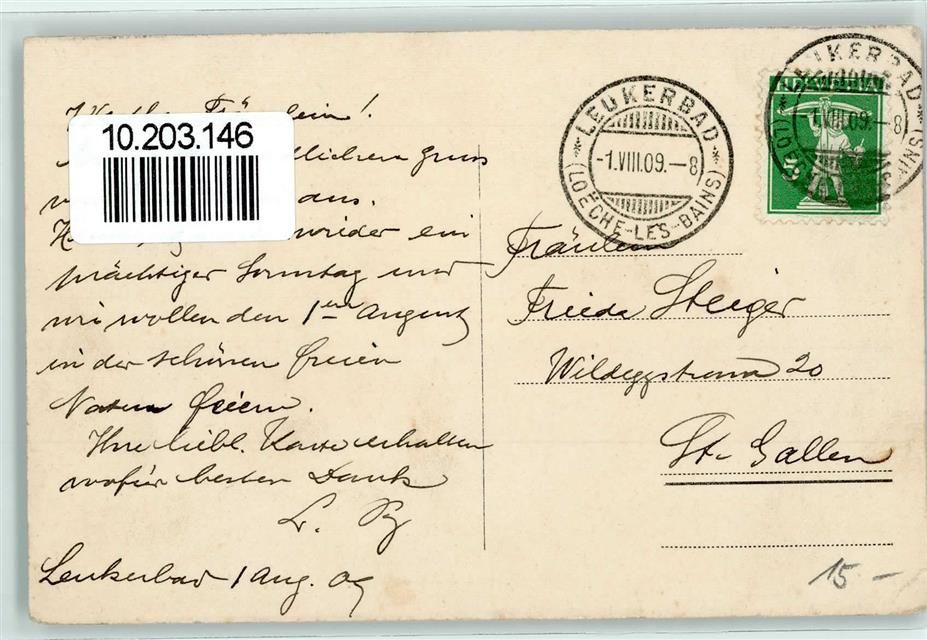 10.203.146
lichen Gruss
aus.
wieder ein
prächtiger Sonntag und
wir wollen den 1ten August
in der schönen freien
Natur feiern.
Ihre liebl. Karte erhalten
wofür besten Dank
Leukerbad 1 Aug. 09
LEUKERBAD
-1.VIII.09.-8
(LOËCHE-LES-BAINS)
LEUKERBAD
1.VIII.09.-8
HELVETIA
Fräulein
Frieda Steiger
Wildeggstrasse 20
St. Gallen
15-